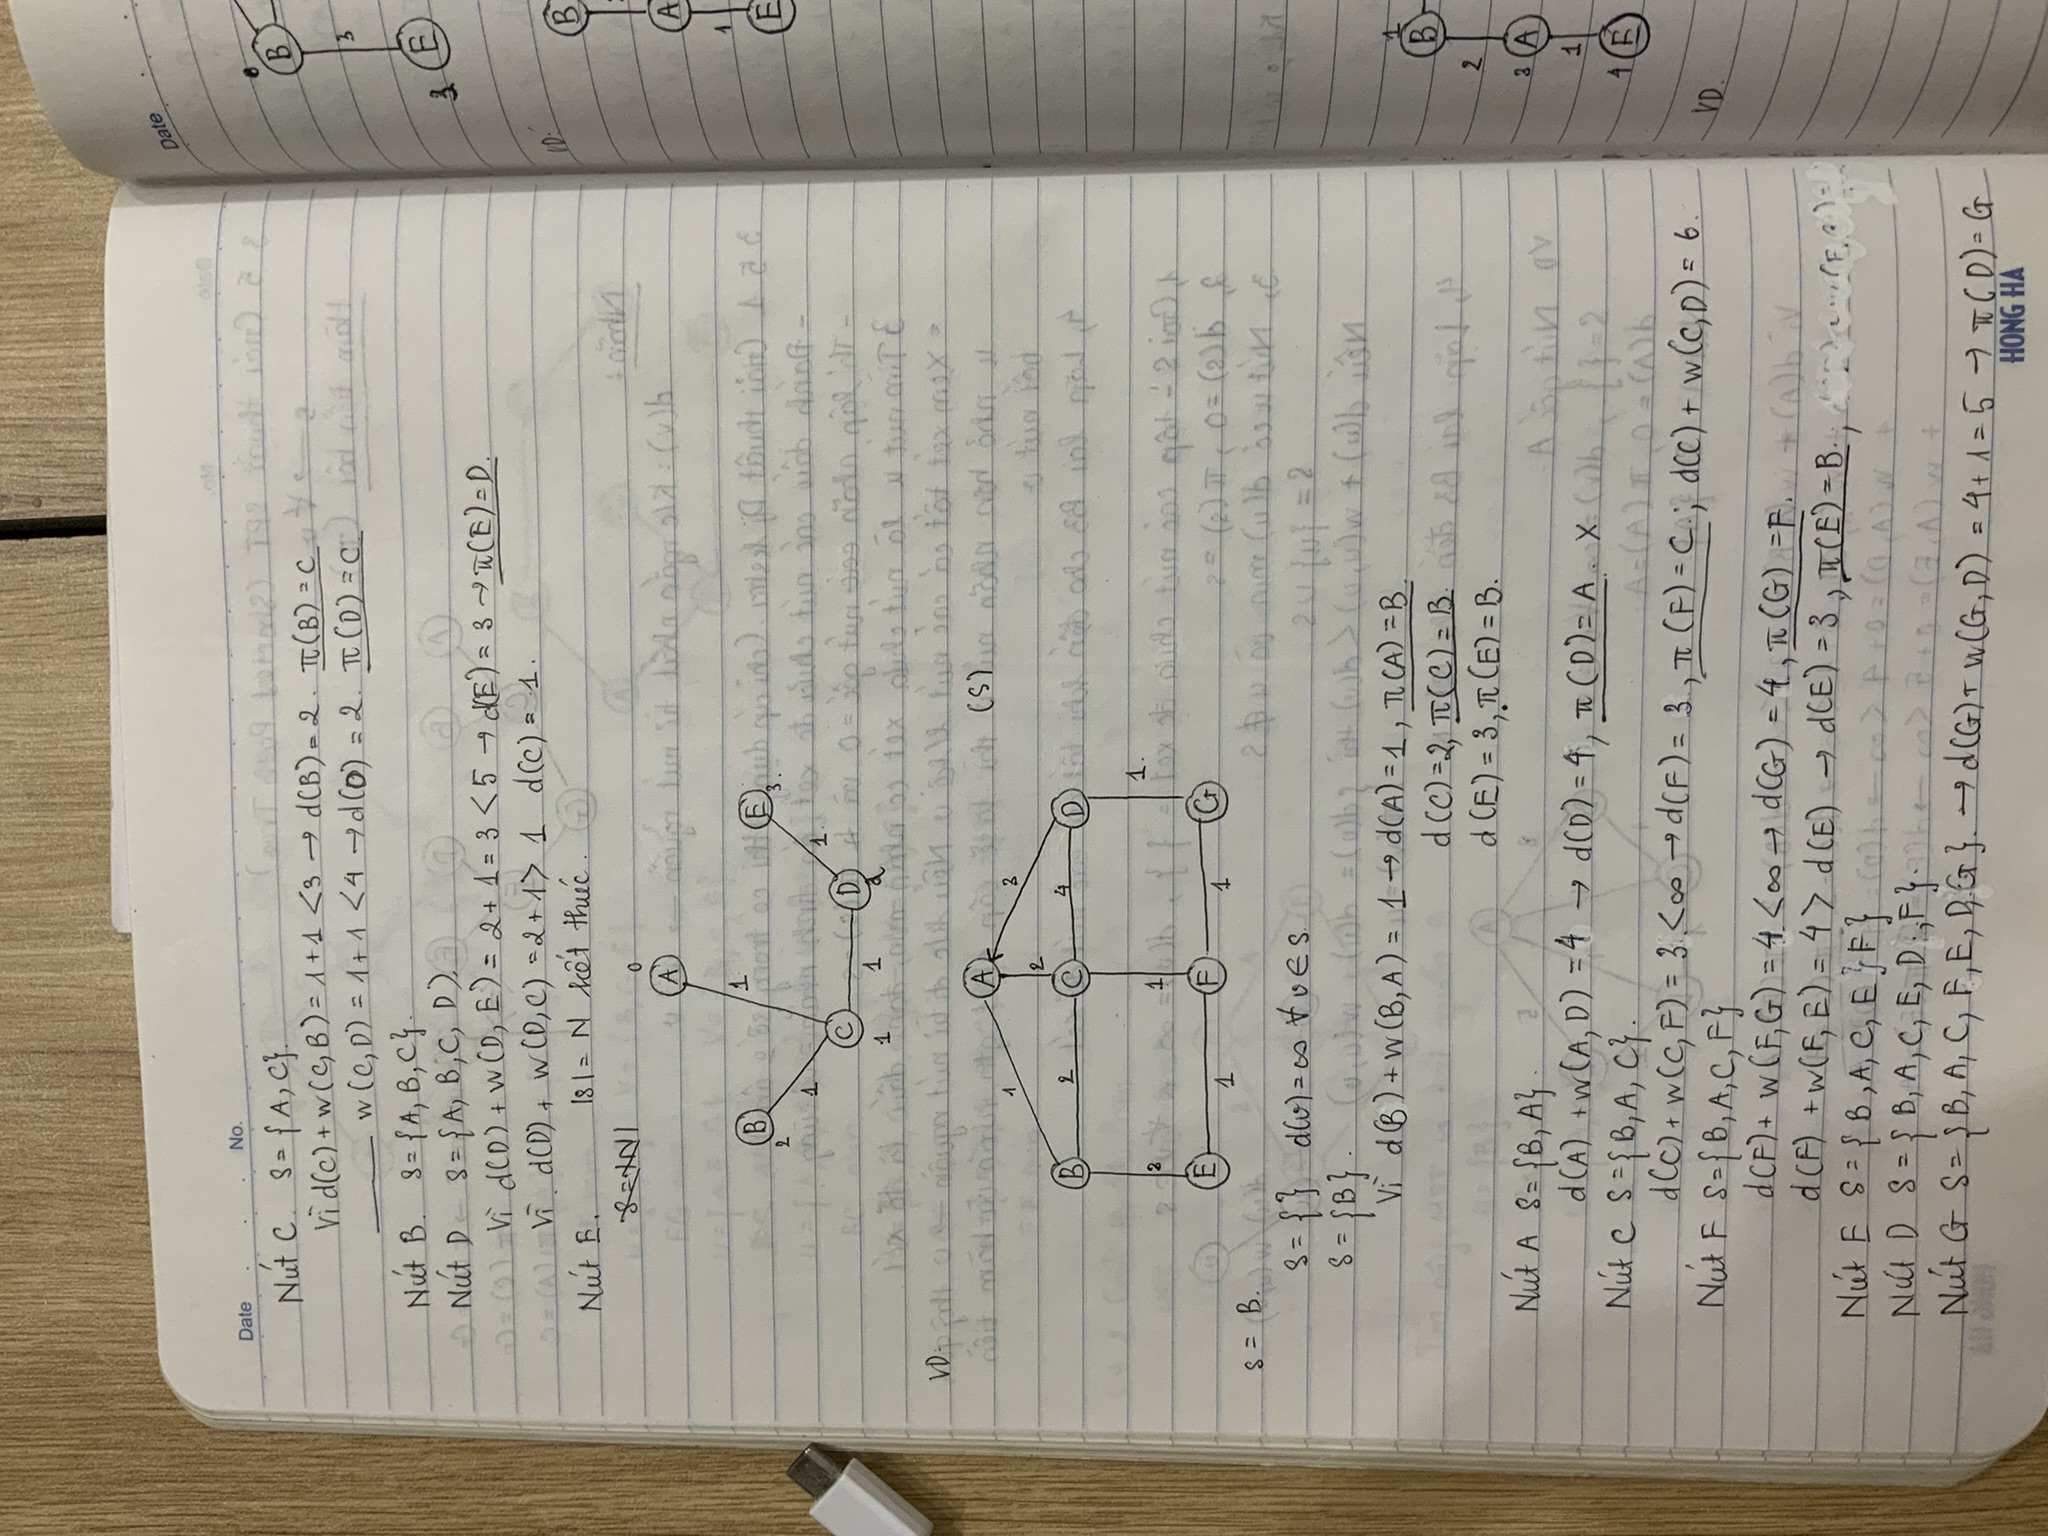 Date No.
Nút C. S = {A, C}.
Vì d(C) + w(C,B) = 1+1 < 3 → d(B) = 2. π(B) = C
w(C,D) = 1+1 < 4 → d(D) = 2. π(D) = C.
Nút B. S = {A, B, C}.
Nút D S = {A, B, C, D}.
Vì d(D) + w(D, E) = 2+1 = 3 < 5 → d(E) = 3 → π(E) = D.
Vì. d(D) + w(D,C) = 2+1 > 1 d(C) = 1.
Nút E. |S| = N kết thúc.
0
A
1
B E
2 3.
1 1
C D
1 1 2
VD:
A (S)
1 2 3
B 2 C 4 D
2 1 1.
E F G
1 1
s = B.
S = { } d(v) = ∞ ∀ v ∈ S
S = {B}.
Vì d(B) + w(B,A) = 1 → d(A) = 1, π(A) = B.
d(C) = 2, π(C) = B.
d(E) = 3, π(E) = B.
Nút A S = {B, A}.
d(A) + w(A, D) = 4 → d(D) = 4, π(D) = A. X
Nút C S = {B, A, C}.
d(C) + w(C,F) = 3 < ∞ → d(F) = 3, π(F) = C.; d(C) + w(C,D) = 6.
Nút F S = {B, A, C, F}
d(F) + w(F,G) = 4 < ∞ → d(G) = 4, π(G) = F.
d(F) + w(F,E) = 4 > d(E) → d(E) = 3, π(E) = B.;
Nút E S = { B, A, C, E, F}
Nút D S = { B, A, C, E, D, F}.
Nút G S = {B, A, C, F, E, D, G}. → d(G) + w(G,D) = 4+1 = 5 → π(D) = G
HONG HA
Date
0
B
3
E
3
VD:
B
A
1
E
1
B
2
3 A
1
4 E
VD.